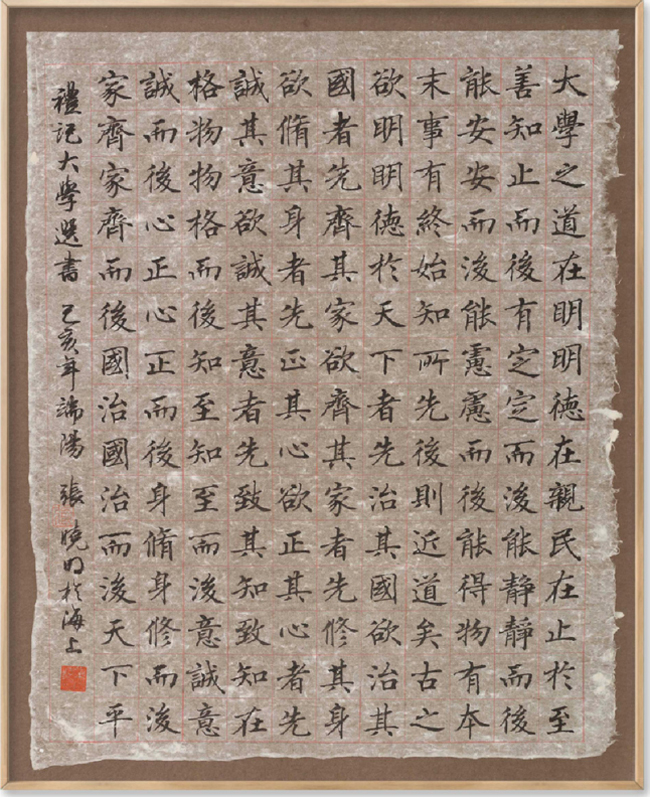 大學之道在明明德在親民在止於至
善知止而後有定定而後能静静而後
能安安而後能慮慮而後能得物有本
末事有終始知所先後則近道矣古之
欲明明德於天下者先治其國欲治其
國者先齊其家欲齊其家者先修其身
欲脩其身者先正其心欲正其心者先
誠其意欲誠其意者先致其知致知在
格物物格而後知至知至而後意誠意
誠而後心正心正而後身脩身修而後
家齊家齊而後國治國治而後天下平
禮記大學選書 己亥年端陽 張曉明於海上